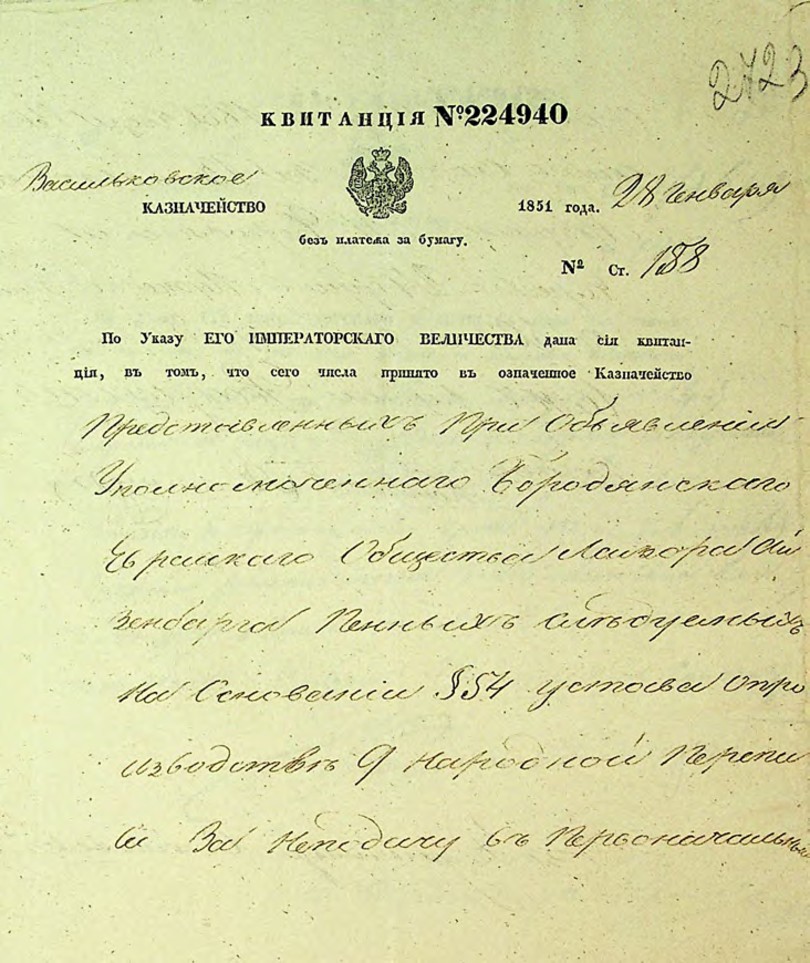 2723
КВИТАНЦІЯ №224940
Васильковское
КАЗНАЧЕЙСТВО
1851 года. 28 Генваря
безъ платежа за бумагу.
№ Ст. 188
По Указу ЕГО ИМПЕРАТОРСКАГО ВЕЛИЧЕСТВА дана сія квитан-
ція, въ томъ, что сего числа принято въ означенное Казначейство
Представленныхъ При Объявленіи
Уполномоченнаго Бородянскаго
Еврейскаго Общества Лейзора Ай
зенбарга Пенныхъ слѣдуемыхъ
На Основаніи §54 устава опро
изводствѣ 9 Народной Перепи
си За Неподачу въ Первоначальный